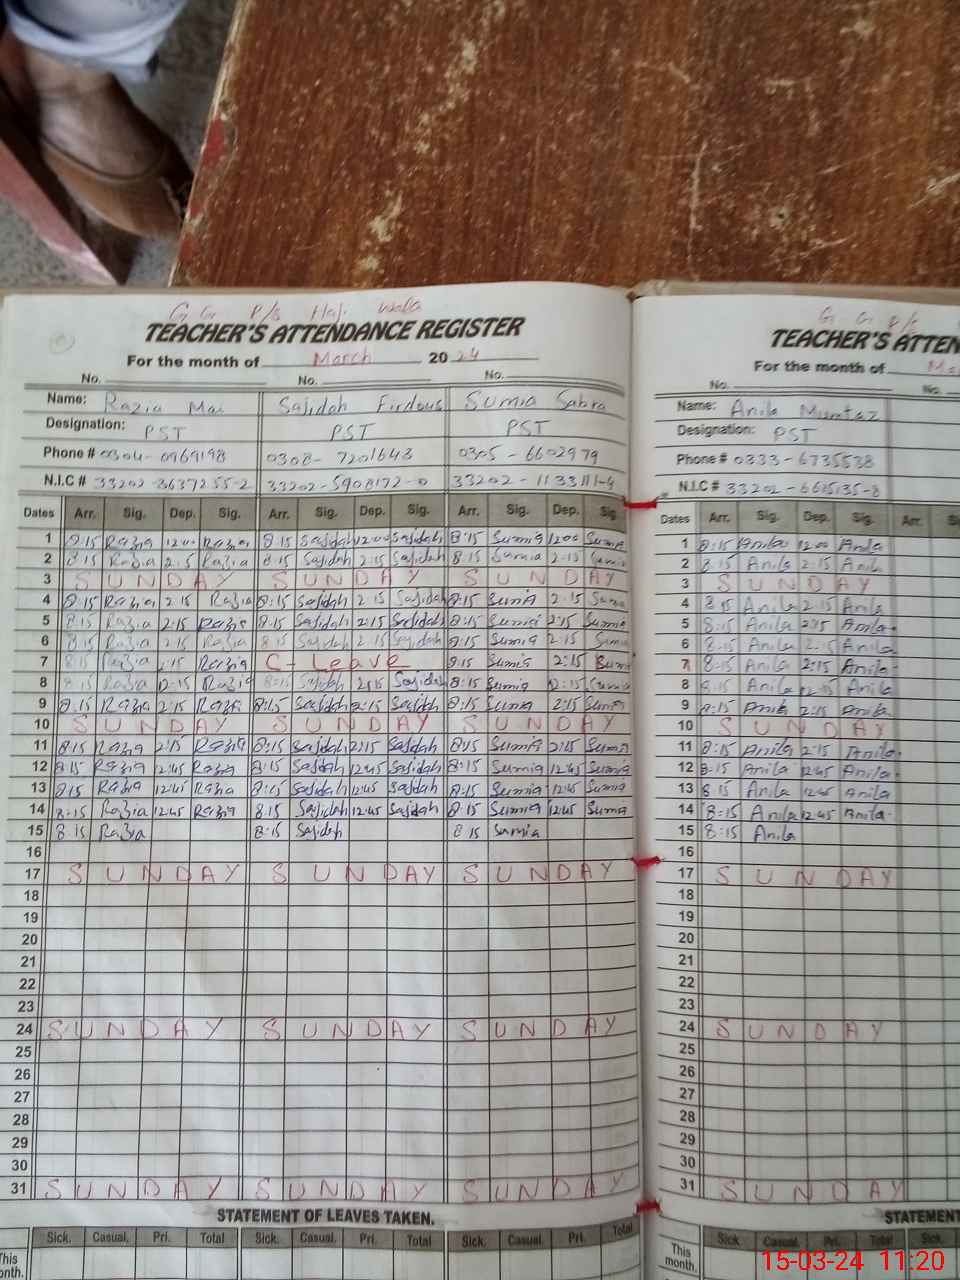 G G P/S Haji wala
TEACHER'S ATTENDANCE REGISTER
For the month of March 2024
No. No. No.
Name: Razia Mai Sajidah Firdous Sumia Sabra
Designation: PST PST PST
Phone # 0304-0969198 0308-7201643 0305-6602979
N.I.C # 33202-3637255-2 33202-5908172-0 33202-1133111-4
Dates Arr. Sig. Dep. Sig. Arr. Sig. Dep. Sig. Arr. Sig. Dep. Sig.
1 8:15 Razia 12:00 Razia 8:15 Sajidah 12:00 Sajidah 8:15 Sumia 12:00 Sumia
2 8:15 Razia 2:15 Razia 8:15 Sajidah 2:15 Sajidah 8:15 Sumia 2:15 Sumia
3 SUNDAY SUNDAY SUNDAY
4 8:15 Razia 2:15 Razia 8:15 Sajidah 2:15 Sajidah 8:15 Sumia 2:15 Sumia
5 8:15 Razia 2:15 Razia 8:15 Sajidah 2:15 Sajidah 8:15 Sumia 2:15 Sumia
6 8:15 Razia 2:15 Razia 8:15 Sajidah 2:15 Sajidah 8:15 Sumia 2:15 Sumia
7 8:15 Razia 2:15 Razia C-Leave 8:15 Sumia 2:15 Sumia
8 8:15 Razia 12:15 Razia 8:15 Sajidah Sajidah 8:15 Sumia 12:15 Sumia
9 8:15 Razia 2:15 Razia 8:15 Sajidah 2:15 Sajidah 8:15 Sumia 2:15 Sumia
10 SUNDAY SUNDAY SUNDAY
11 8:15 Razia 2:15 Razia 8:15 Sajidah 2:15 Sajidah 8:15 Sumia 2:15 Sumia
12 8:15 Razia 12:45 Razia 8:15 Sajidah 12:45 Sajidah 8:15 Sumia 12:45 Sumia
13 8:15 Razia 12:45 Razia 8:15 Sajidah 12:45 Sajidah 8:15 Sumia 12:45 Sumia
14 8:15 Razia 12:45 Razia 8:15 Sajidah 12:45 Sajidah 8:15 Sumia 12:45 Sumia
15 8:15 Razia 8:15 Sajidah 8:15 Sumia
16
17 SUNDAY SUNDAY SUNDAY
18
19
20
21
22
23
24 SUNDAY SUNDAY SUNDAY
25
26
27
28
29
30
31 SUNDAY SUNDAY SUNDAY
STATEMENT OF LEAVES TAKEN.
Sick. Casual. Pri. Total Sick. Casual. Pri. Total Sick. Casual. Pri. Total
This month.
G G P/S
TEACHER'S ATTEN
For the month of Ma
No. No.
Name: Anila Mumtaz
Designation: PST
Phone # 0333-6735538
N.I.C # 33202-6615135-8
Dates Arr. Sig. Dep. Sig. Arr. S
1 8:15 Anila 12:00 Anila
2 8:15 Anila 2:15 Anila
3 SUNDAY
4 8:15 Anila 2:15 Anila
5 8:15 Anila 2:15 Anila
6 8:15 Anila 2:15 Anila
7 8:15 Anila 2:15 Anila
8 8:15 Anila 12:15 Anila
9 8:15 Anila 2:15 Anila
10 SUNDAY
11 8:15 Anila 2:15 Anila
12 8:15 Anila 12:45 Anila
13 8:15 Anila 12:45 Anila
14 8:15 Anila 12:45 Anila
15 8:15 Anila
16
17 SUNDAY
18
19
20
21
22
23
24 SUNDAY
25
26
27
28
29
30
31 SUNDAY
STATEMENT
Sick Casual. Pri. Total Sick. Casual
This month.
15-03-24 11:20